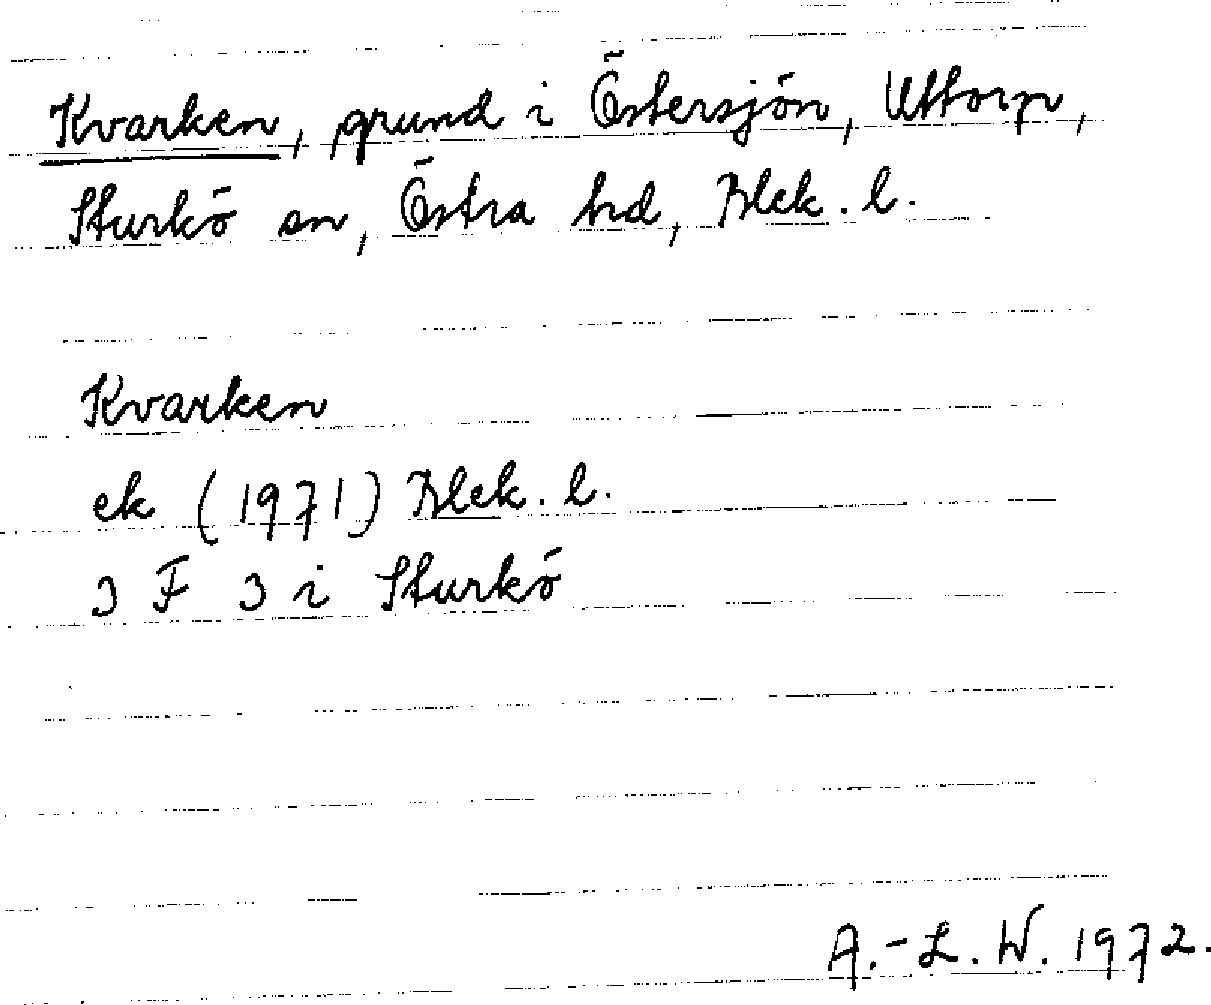 Kvarken, grund i Östersjön, Uttorp,
Sturkö sn, Östra hd, Blek. l.
Kvarken
ek (1971) Blek. l.
3 F 3 i Sturkö
A.-L. W. 1972.